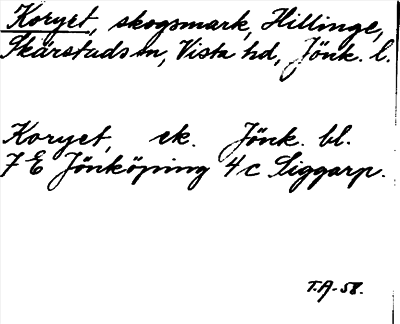 Koryet, skogsmark, Hillinge,
Skärstads sn, Vista hd, Jönk. l.
Koryet, ek. Jönk. bl.
7 E Jönköping 4 c Siggarp.
T.A-58.